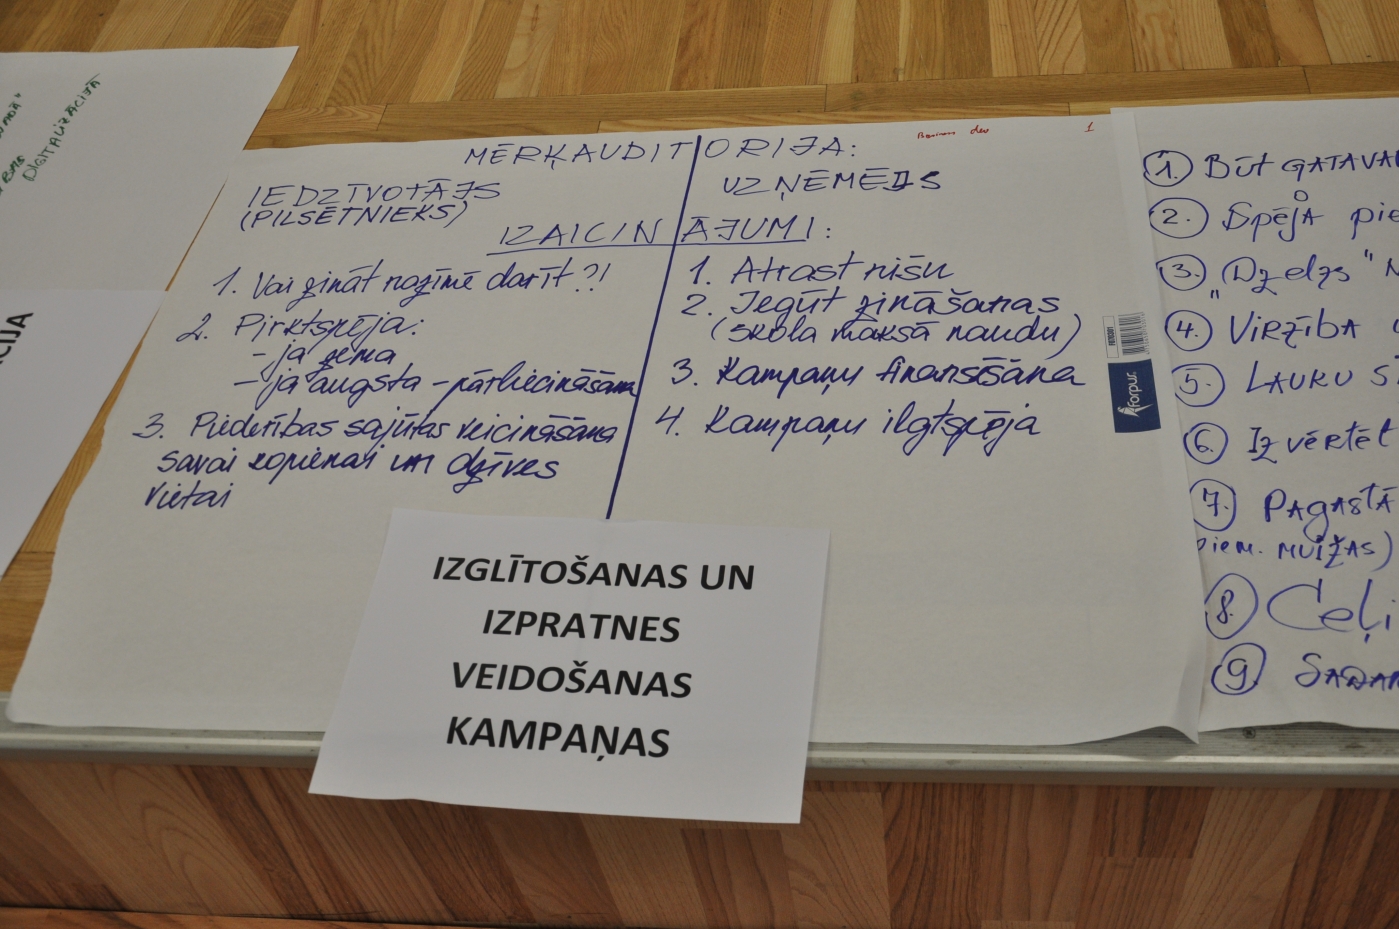 DIGITALIZĀCIJA
MĒRĶAUDITORIJA:
IEDZĪVOTĀJS
(PILSĒTNIEKS)
UZŅĒMĒJS
IZAICINĀJUMI:
1. Vai zināt nozīmē darīt?!
2. Pirktspēja:
- ja zema
- ja augsta - pārliecināšana
3. Piederības sajūtas veicināšana
savai kopienai un dzīves
vietai
1. Atrast nišu
2. Iegūt zināšanas
(skola maksā naudu)
3. Kampaņu finansēšana
4. Kampaņu ilgtspēja
Business dev 1
forpus
IZGLĪTOŠANAS UN
IZPRATNES
VEIDOŠANAS
KAMPAŅAS
CIJA
1. Būt GATAVA
2. Spēja pie
3. "Dzelzs"
4. VIRZĪBA
5. LAUKU
6. Izvērtēt
7. PAGASTĀ
piem. MUIŽAS)
8. Ceļi
9. SADAR